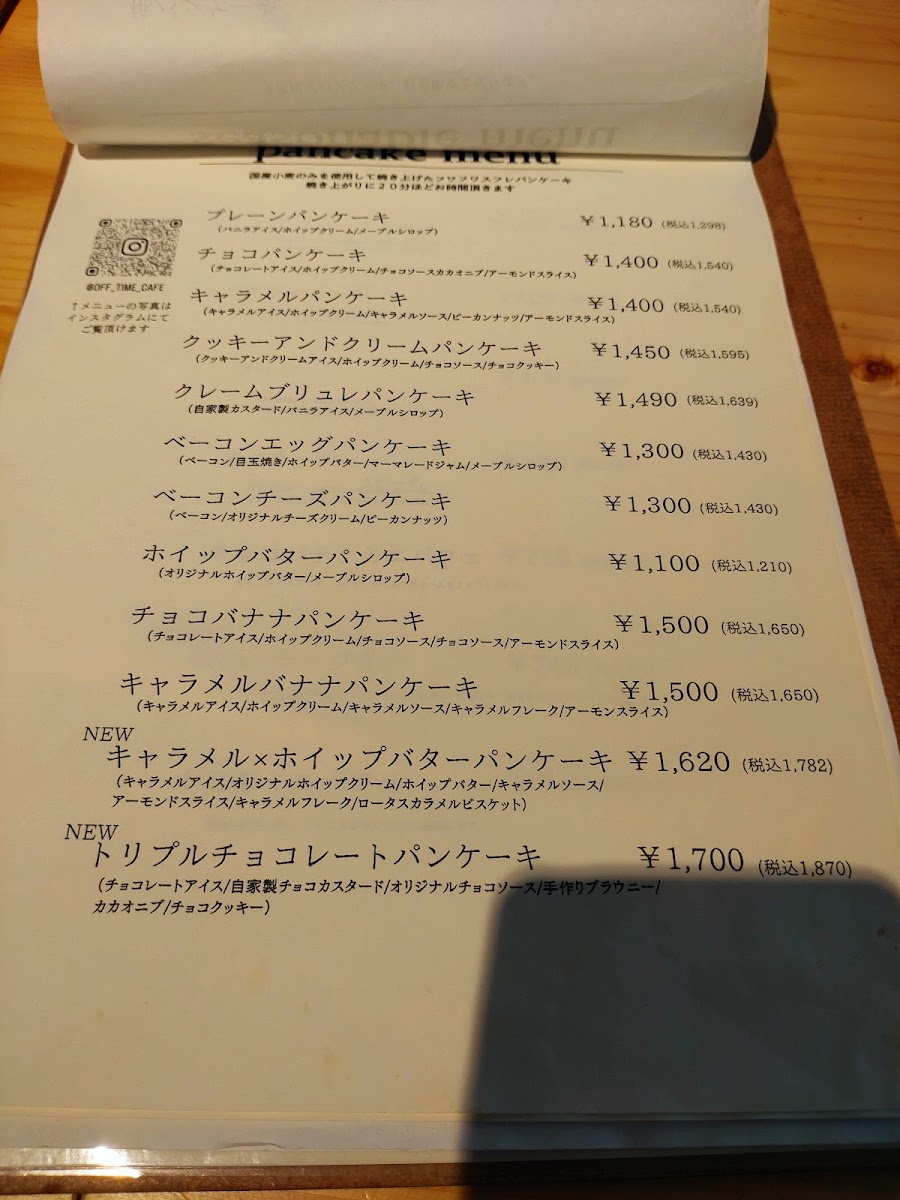 pancake menu
国産小麦のみを使用して焼き上げたフワフワスフレパンケーキ
焼き上がりに20分ほどお時間頂きます
@OFF_TIME_CAFE
↑メニューの写真は
インスタグラムにて
ご覧頂けます
プレーンパンケーキ ¥1,180 (税込1,298)
(バニラアイス/ホイップクリーム/メープルシロップ)
チョコパンケーキ ¥1,400 (税込1,540)
(チョコレートアイス/ホイップクリーム/チョコソースカカオニブ/アーモンドスライス)
キャラメルパンケーキ ¥1,400 (税込1,540)
(キャラメルアイス/ホイップクリーム/キャラメルソース/ピーカンナッツ/アーモンドスライス)
クッキーアンドクリームパンケーキ ¥1,450 (税込1,595)
(クッキーアンドクリームアイス/ホイップクリーム/チョコソース/チョコクッキー)
クレームブリュレパンケーキ ¥1,490 (税込1,639)
(自家製カスタード/バニラアイス/メープルシロップ)
ベーコンエッグパンケーキ ¥1,300 (税込1,430)
(ベーコン/目玉焼き/ホイップバター/マーマレードジャム/メープルシロップ)
ベーコンチーズパンケーキ ¥1,300 (税込1,430)
(ベーコン/オリジナルチーズクリーム/ピーカンナッツ)
ホイップバターパンケーキ ¥1,100 (税込1,210)
(オリジナルホイップバター/メープルシロップ)
チョコバナナパンケーキ ¥1,500 (税込1,650)
(チョコレートアイス/ホイップクリーム/チョコソース/チョコソース/アーモンドスライス)
キャラメルバナナパンケーキ ¥1,500 (税込1,650)
(キャラメルアイス/ホイップクリーム/キャラメルソース/キャラメルフレーク/アーモンスライス)
NEW
キャラメル×ホイップバターパンケーキ ¥1,620 (税込1,782)
(キャラメルアイス/オリジナルホイップクリーム/ホイップバター/キャラメルソース/
アーモンドスライス/キャラメルフレーク/ロータスカラメルビスケット)
NEW
トリプルチョコレートパンケーキ ¥1,700 (税込1,870)
(チョコレートアイス/自家製チョコカスタード/オリジナルチョコソース/手作りブラウニー/
カカオニブ/チョコクッキー)